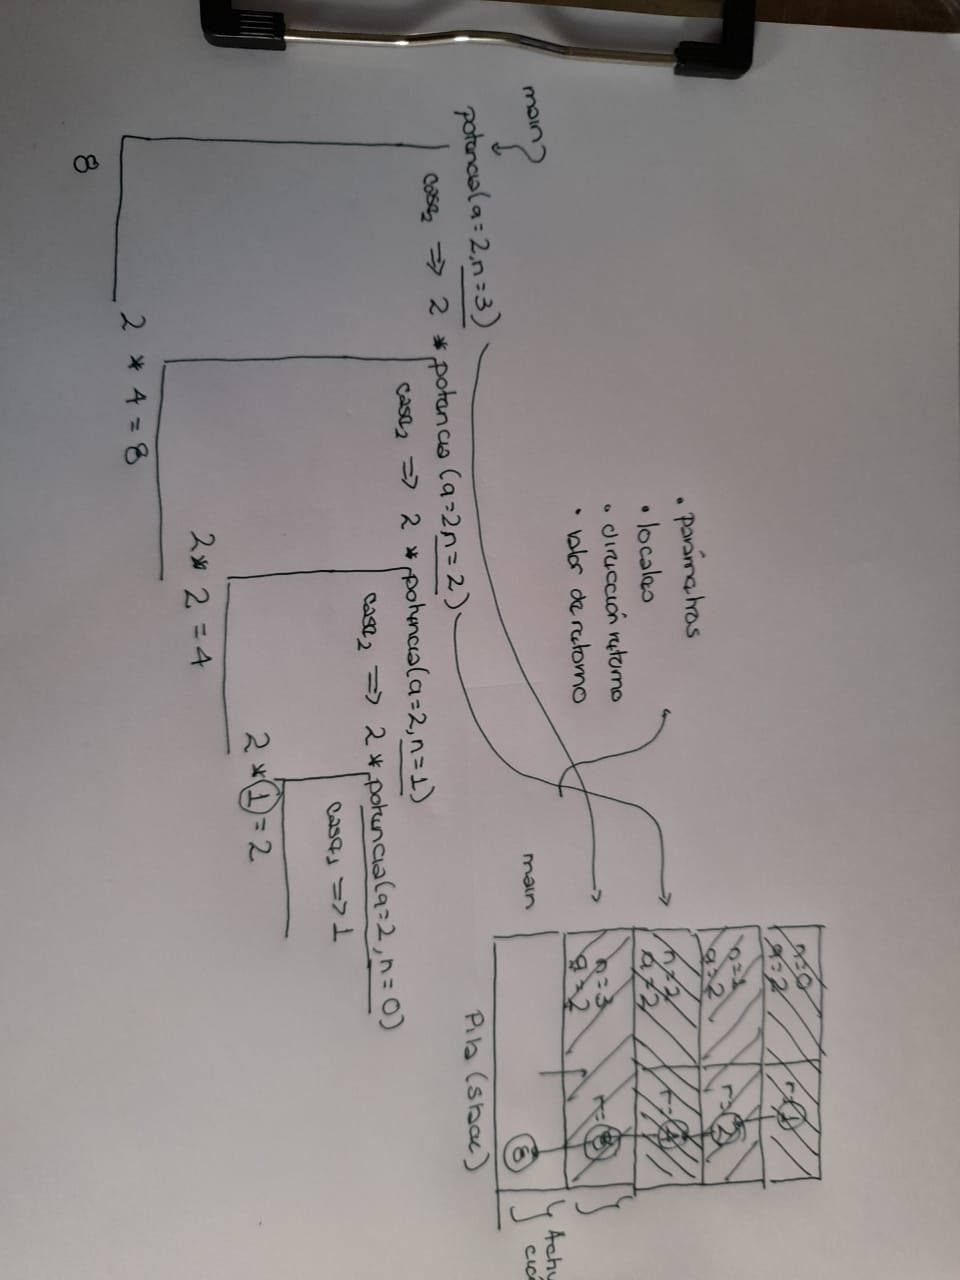 main
potencia(a=2,n=3)
caso2 => 2 * potencia(a=2,n=2)
caso2 => 2 * potencia(a=2,n=1)
caso2 => 2 * potencia(a=2,n=0)
caso1 => 1
2 * 1 = 2
2 * 2 = 4
2 * 4 = 8
8
• parámetros
• locales
• dirección retorno
• valor de retorno
n=0
a=2
r=1
n=1
a=2
r=2
n=2
a=2
r=4
n=3
a=2
r=8
main
8
Pila (stack)